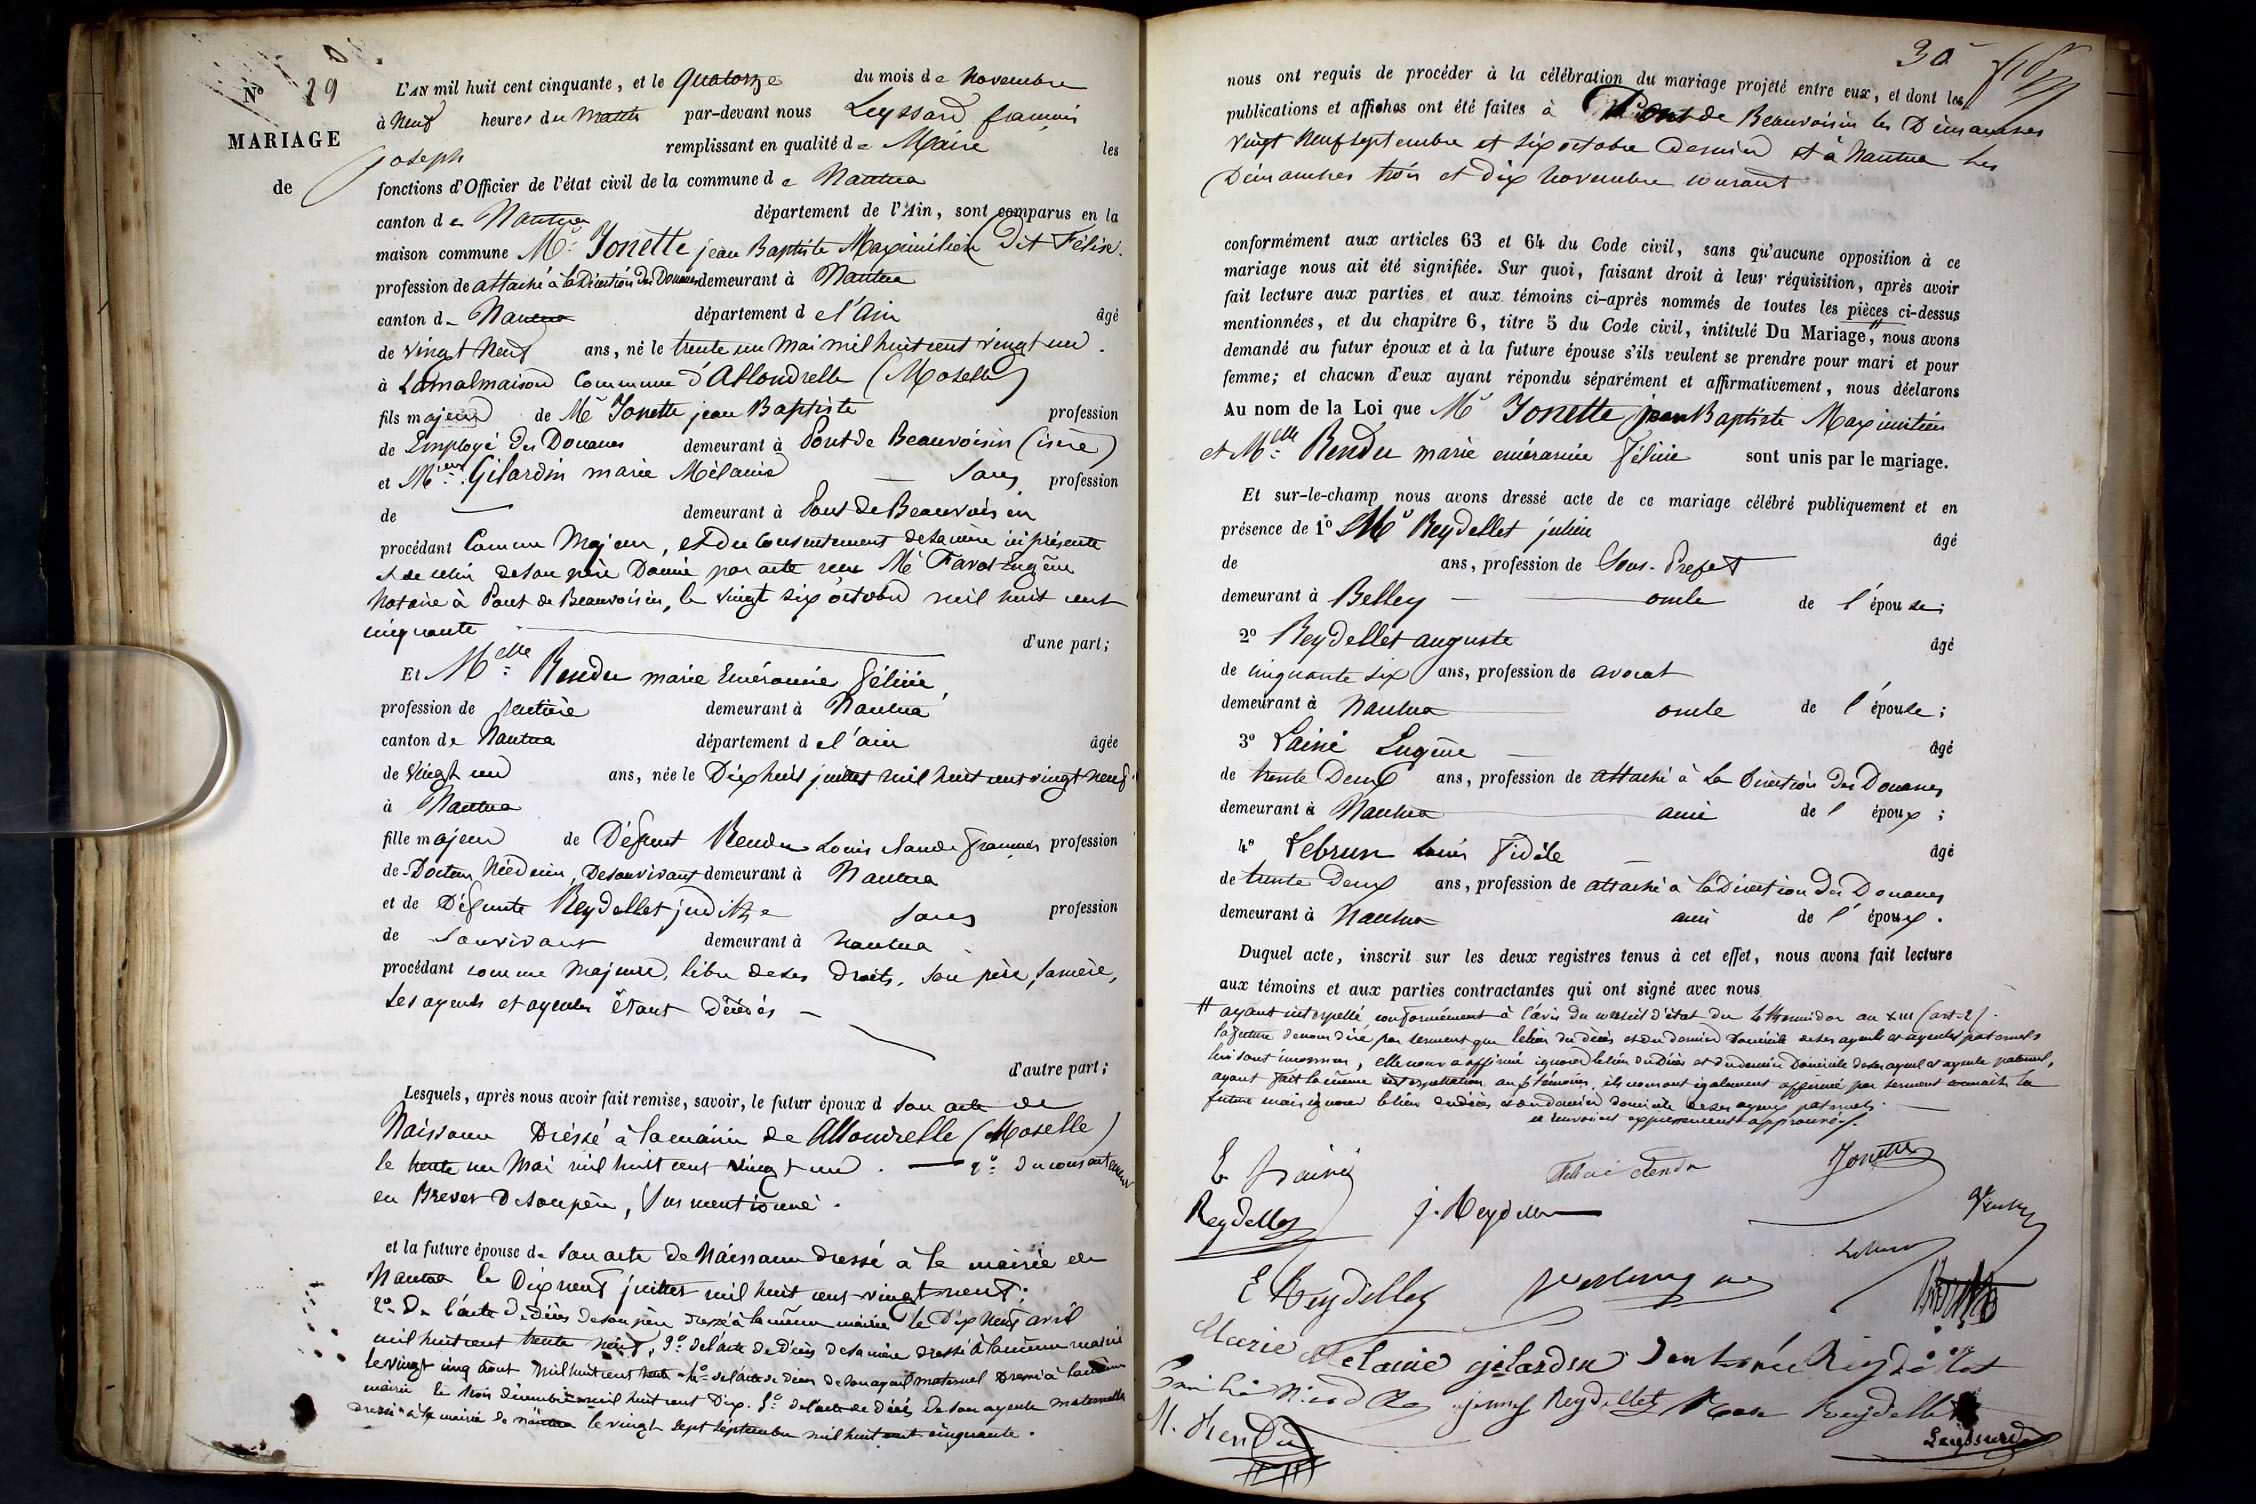 N° 29
MARIAGE
de
L'AN mil huit cent cinquante, et le Quatorze du mois de Novembre
à Neuf heures du matin par-devant nous Leyssard françois
joseph remplissant en qualité de Maire les
fonctions d'Officier de l'état civil de la commune de Nantua
canton de Nantua département de l'Ain, sont comparus en la
maison commune Mr Jonette jean Baptiste Maximilien (dit Félix.
profession de attaché à la Direction des Douanes demeurant à Nantua
canton de Nantua département de l'Ain âgé
de vingt Neuf ans, né le trente un Mai mil huit cent vingt un.
à Lamalmaison Commune d'Allondrelle (Moselle)
fils majeur de Mr Jonette jean Baptiste profession
de Employé des Douanes demeurant à Pont de Beauvoisin (isere)
et Gilardin marie Mélanie — Sans profession
de — demeurant à Pont de Beauvoisin
procédant Comme Majeur, et du consentement de sa mère ici présente
et de celui de son père Donné par acte reçu Me Favot Eugène
Notaire à Pont de Beauvoisin, le vingt six octobre mil huit cent
cinquante d'une part;
Et Melle Rendu marie Emérancie Félicie,
profession de rentière demeurant à Nantua
canton de Nantua département de l'ain âgée
de vingt un ans, née le Dix huit juillet mil huit cent vingt neuf.
à Nantua
fille majeur de Défunt Rendu Louis Claude François profession
de Docteur Médecin, De son vivant demeurant à Nantua
et de Défunte Reydellet judithe Sans profession
de Son vivant demeurant à Nantua
procédant comme Majeure, libre de ses Droits, Son père, Sa mère,
Ses ayeuls et ayeules étant Décédés —
d'autre part;
Lesquels, après nous avoir fait remise, savoir, le futur époux d Son acte de
Naissance Dressé à la mairie de Allondrelle (Moselle)
le trente un Mai mil huit cent vingt un. — 2°. du consentement
en Brevet De son père, Sus mentionné.
et la future épouse de Son acte de Naissance dressé à la mairie de
Nantua le Dix neuf juillet mil huit cent vingt neuf;
2° De l'acte de décès de son père dressé à la même mairie le Dix Neuf avril
mil huit cent trente neuf, 3° de l'acte de Décès de sa mère dressé à la même mairie
le vingt cinq aout mil huit cent trente 4° de l'acte de décès de son ayeul maternel Dressé à la même
mairie le trois décembre mil huit cent Dix. 5° de l'acte de Décès de son ayeule maternelle
dressé à la mairie de Nantua le vingt sept septembre mil huit cent cinquante.
30
nous ont requis de procéder à la célébration du mariage projeté entre eux, et dont les
publications et affiches ont été faites à Pont de Beauvoisin les Dimanches
vingt Neuf septembre et six octobre dernier et à Nantua les
Dimanches trois et dix Novembre courant
conformément aux articles 63 et 64 du Code civil, sans qu'aucune opposition à ce
mariage nous ait été signifiée. Sur quoi, faisant droit à leur réquisition, après avoir
fait lecture aux parties et aux témoins ci-après nommés de toutes les pièces ci-dessus
mentionnées, et du chapitre 6, titre 5 du Code civil, intitulé Du Mariage, # nous avons
demandé au futur époux et à la future épouse s'ils veulent se prendre pour mari et pour
femme; et chacun d'eux ayant répondu séparément et affirmativement, nous déclarons
Au nom de la Loi que Mr Jonette jean Baptiste Maximilien
et Melle Rendu marie emérancie Félicie sont unis par le mariage.
Et sur-le-champ nous avons dressé acte de ce mariage célébré publiquement et en
présence de 1° Mr Reydellet julien âgé
de ans, profession de Sous-Prefet
demeurant à Belley — oncle de l'épouse;
2° Reydellet auguste âgé
de cinquante six ans, profession de avocat
demeurant à Nantua oncle de l'épouse;
3° Lainé Eugène — âgé
de trente Deux ans, profession de attaché à la Direction des Douanes
demeurant à Nantua ami de l'époux;
4° Lebrun Louis Fidèle — âgé
de trente Deux ans, profession de attaché à la Direction des Douanes
demeurant à Nantua ami de l'époux.
Duquel acte, inscrit sur les deux registres tenus à cet effet, nous avons fait lecture
aux témoins et aux parties contractantes qui ont signé avec nous
# ayant interpellé conformément à l'avis du conseil d'état du 4 thermidor an XIII (art-2).
la future de nous dire par serment que le lieu du décès et du dernier Domicile de ses ayeuls et ayeules paternels
lui sont inconnus, elle nous a affirmé ignorer le lieu du Décès et du dernier Domicile de ses ayeul et ayeule paternel,
ayant fait la même interpellation aux témoins, ils nous ont également affirmé par serment connaitre la
future mais ignorer le lieu du décès et du dernier domicile de ses ayeux paternels. —
ce renvoi est expressement approuvé.
E. Lainé Félicie Rendu Jonette
Reydellet J. Reydellet
Lebrun
E Reydellet
Marie Mélanie gilardin Reydellet
Jenny Reydellet Reydellet
M. Rendu Leyssard